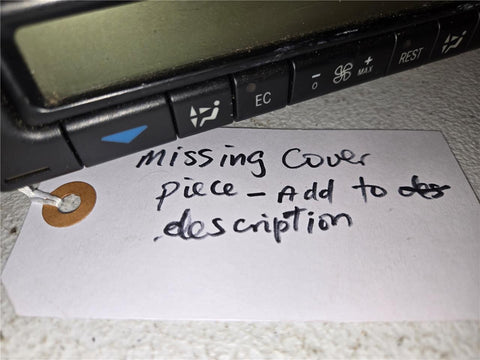 EC
- O
+ MAX
REST
missing cover
piece - Add to des
description